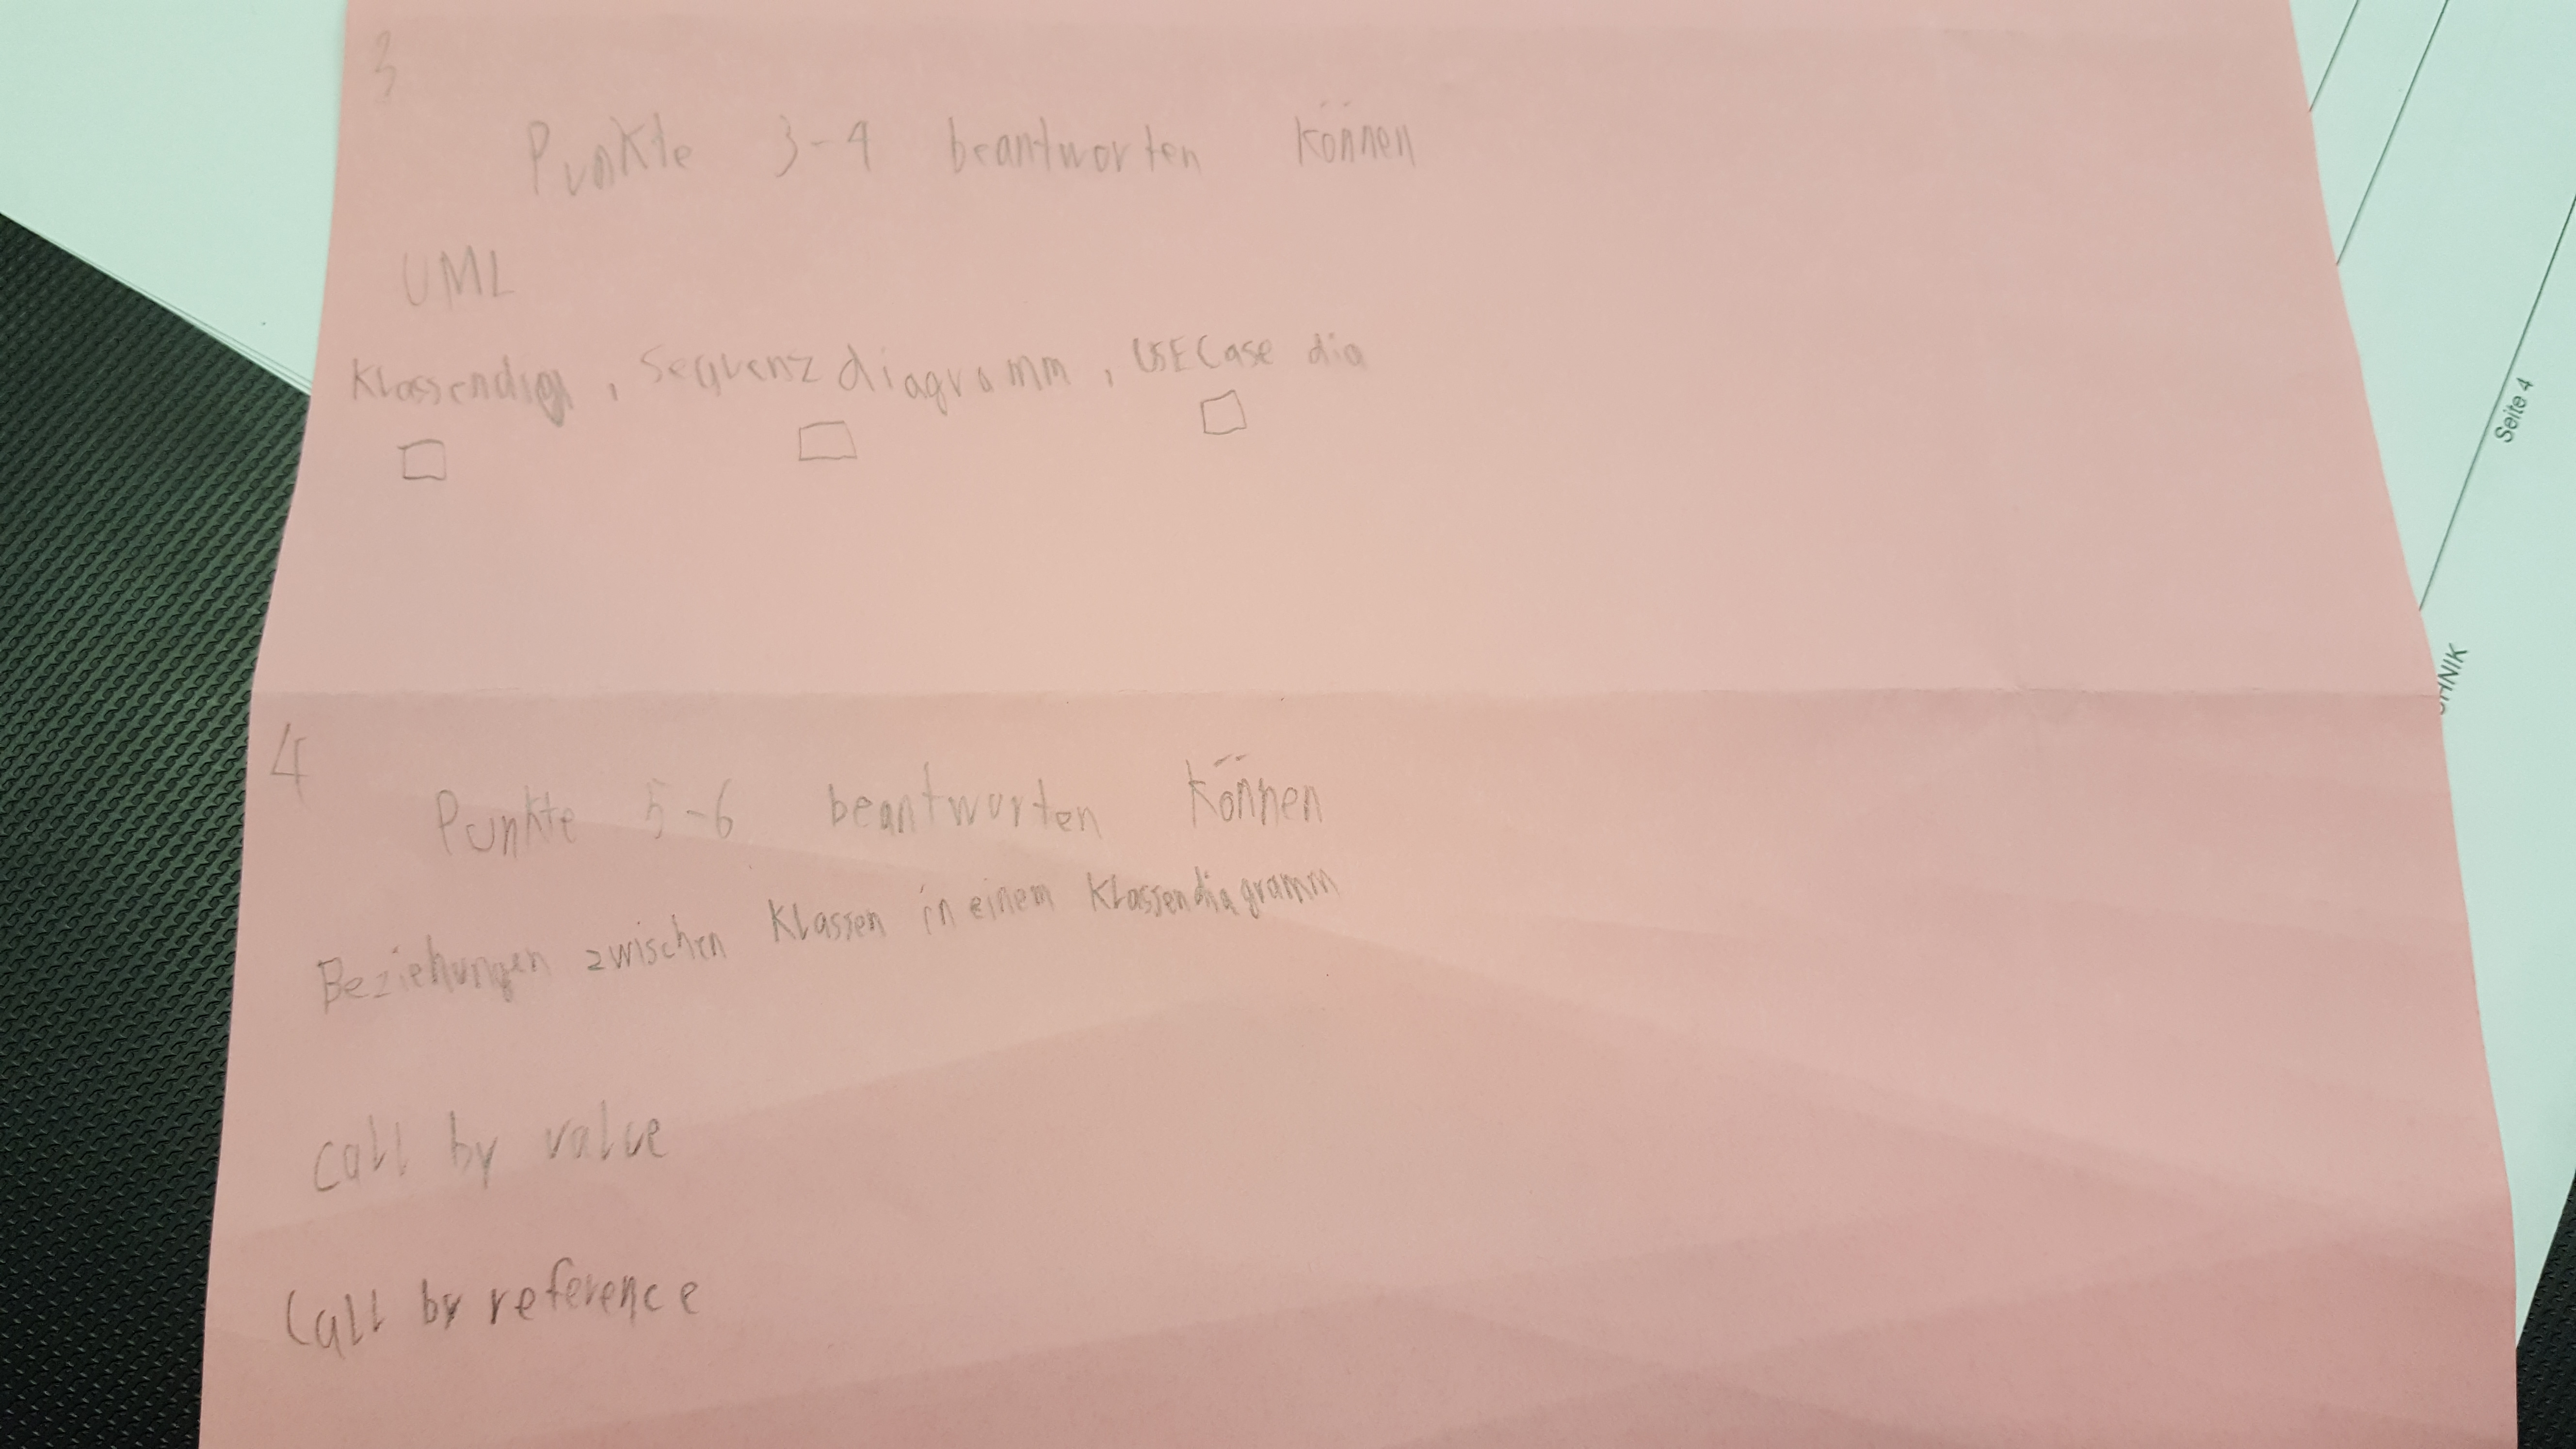 3
Punkte 3-4 beantworten können
UML
Klassendia, Sequenzdiagramm, USECase dia
4
Punkte 5-6 beantworten können
Beziehungen zwischen Klassen in einem Klassendiagramm
Call by value
Call by reference
Seite 4